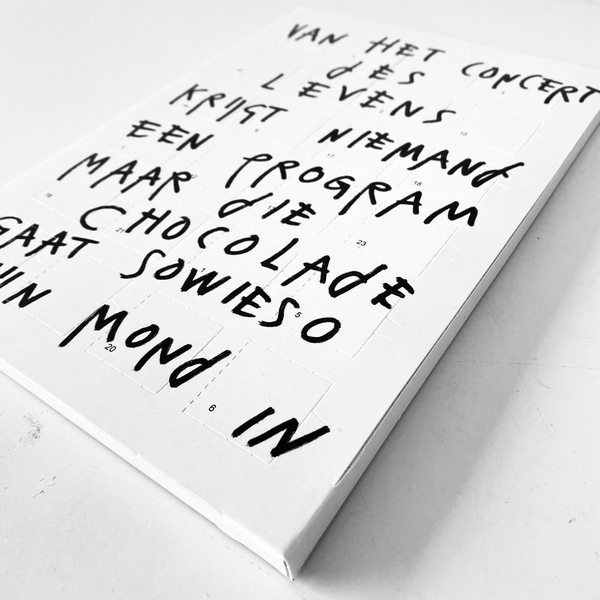 VAN HET CONCERT
dES
LEVENS
KRIJGT NIEMANd
EEN PROGRAM
MAAR dIE
CHOCOLAdE
GAAT SOWIESO
MONd IN
16
17
18
23
5
20
6